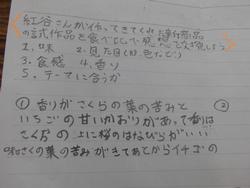 紅谷さんが作ってきてくれた新作商品
の試作品を食べて感
1. 味 2. 見た目(形、色など)
3. 食感 4. 香り
5. テーマに合うか
① 香りがさくらの葉の苦みと ②
いちごの甘いかおりがあって
さくらの上に桜のはなびらがいい
さくらの葉の苦みがきてあとからイチゴの